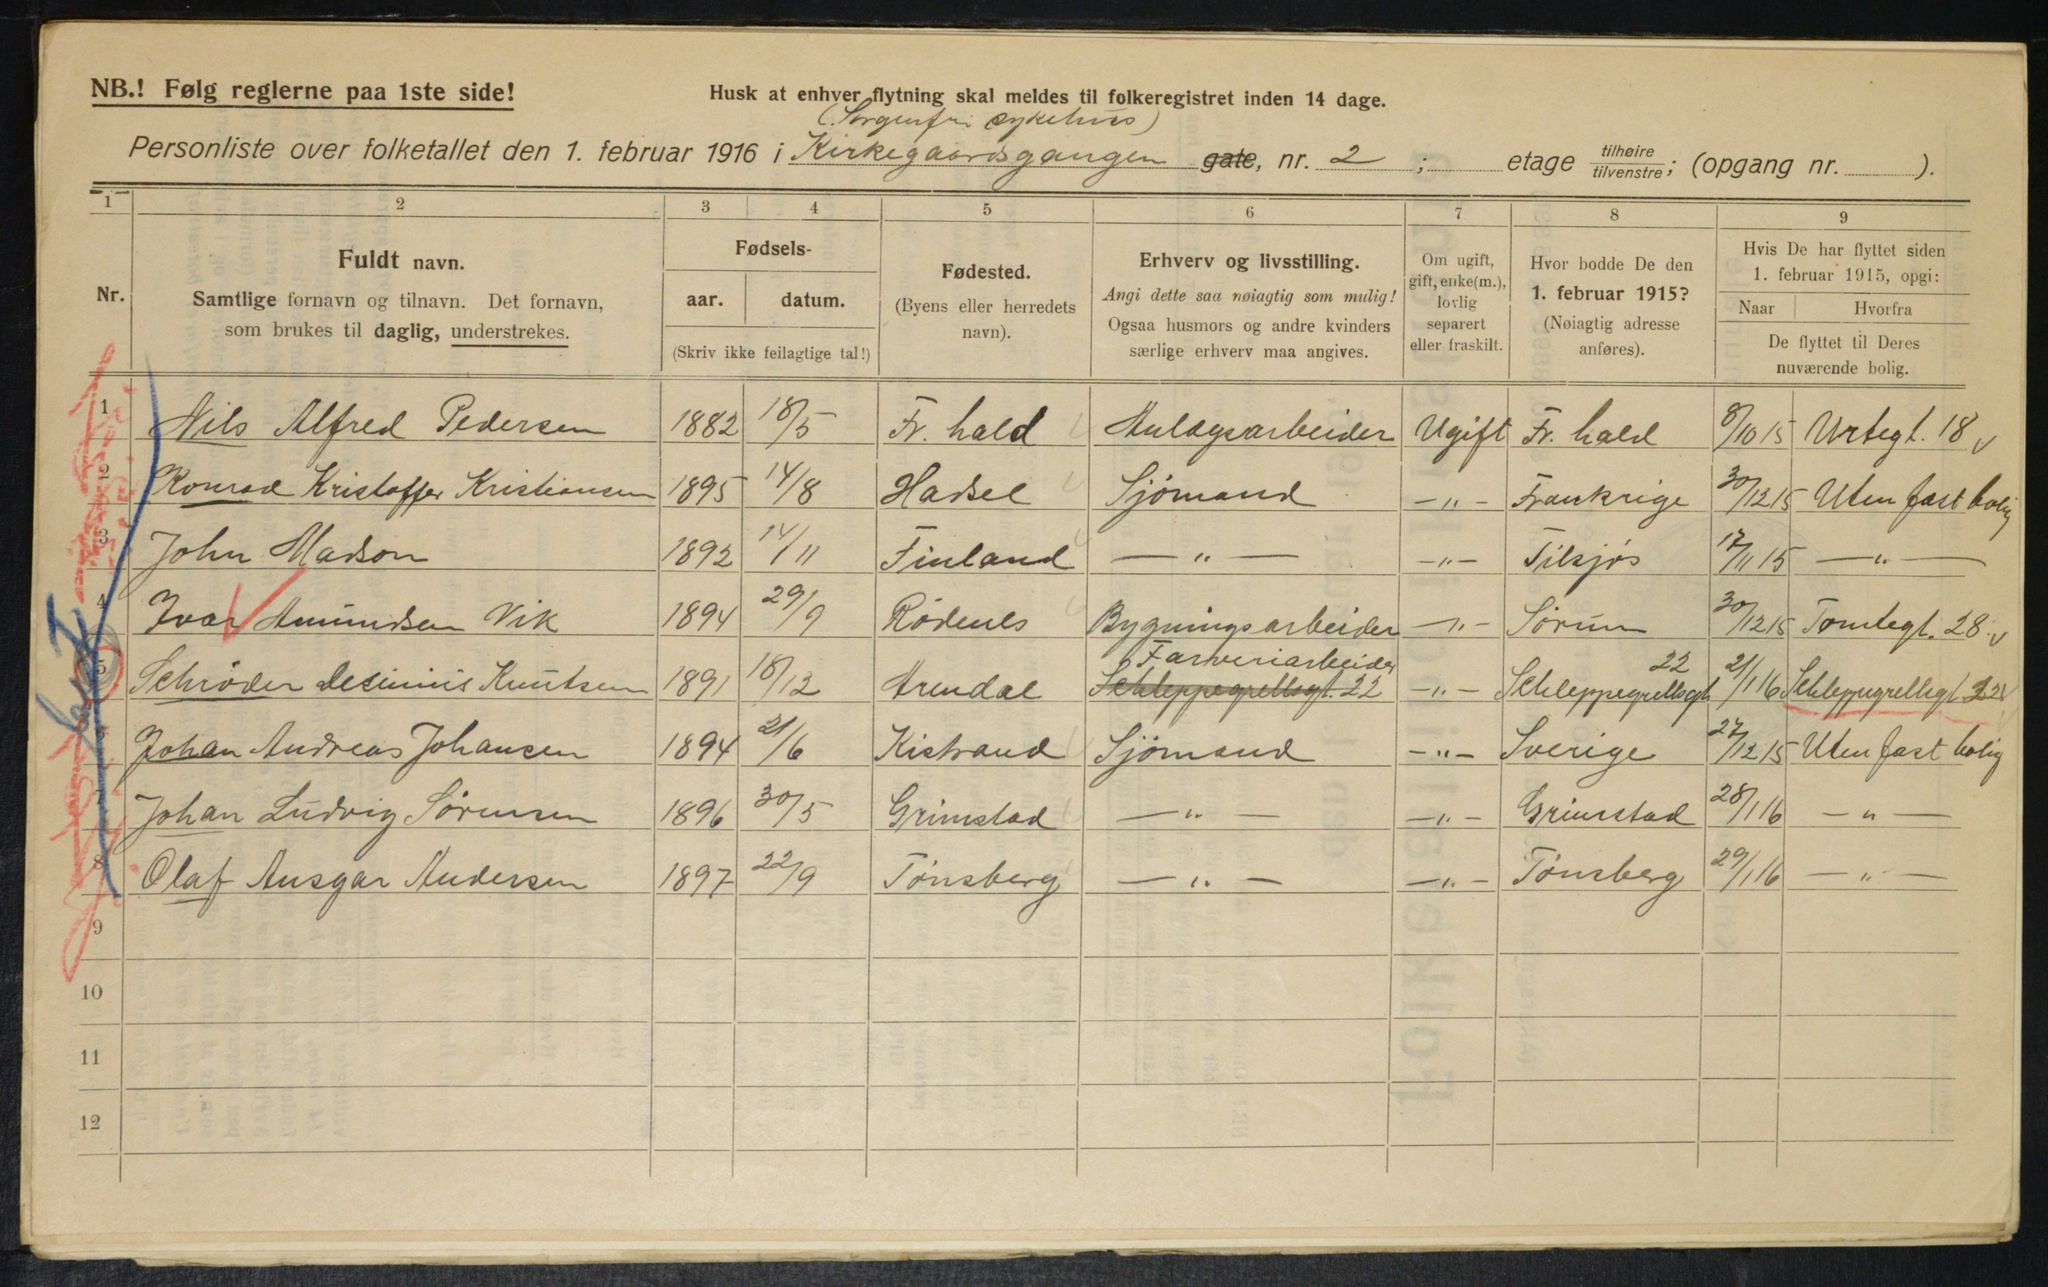 NB.! Følg reglerne paa 1ste side!
Husk at enhver flytning skal meldes til folkeregistret inden 14 dage.
(Sorgenfri sykehus)
Personliste over folketallet den 1. februar 1916 i Kirkegaardsgangen gate, nr. 2 ; etage tilhøire/tilvenstre; (opgang nr. ).
1 2 3 4 5 6 7 8 9
Nr.
Fuldt navn.
Samtlige fornavn og tilnavn. Det fornavn,
som brukes til daglig, understrekes.
Fødsels-
aar. datum.
(Skriv ikke feilagtige tal!)
Fødested.
(Byens eller herredets
navn).
Erhverv og livsstilling.
Angi dette saa nøiagtig som mulig!
Ogsaa husmors og andre kvinders
særlige erhverv maa angives.
Om ugift,
gift, enke(m.),
lovlig
separert
eller fraskilt.
Hvor bodde De den
1. februar 1915?
(Nøiagtig adresse
anføres).
Hvis De har flyttet siden
1. februar 1915, opgi:
Naar Hvorfra
De flyttet til Deres
nuværende bolig.
1 Nils Alfred Pedersen 1882 18/5 Fr. hald Anlægsarbeider Ugift Fr. hald 8/10 15 Urtegt. 18 v
2 Konrad Kristoffer Kristiansen 1895 14/8 Hadsel Sjömand -"- Frankrige 30/12 15 Uten fast bolig
3 John Madson 1892 14/11 Finland -"- -"- Tilsjøs 17/11 15 -"-
4 Ivar Amundsen Vik 1894 29/9 Rödenes Bygningsarbeider -"- Sørum 30/12 15 Tomtegt. 28 v
5 Schrøder Desimus Knutsen 1891 18/12 Arendal Farveriarbeider Schleppegrellsgt. 22 -"- Schleppegrellsgt 22 21/1 16 Schleppegrellsgt 22
6 Johan Andreas Johansen 1894 21/6 Kistrand Sjömand -"- Sverige 27/12 15 Uten fast bolig
7 Johan Ludvig Sörensen 1896 30/5 Grimstad -"- -"- Grimstad 28/1 16 -"-
8 Olaf Ansgar Andersen 1897 22/9 Tønsberg -"- -"- Tønsberg 29/1 16 -"-
9
10
11
12